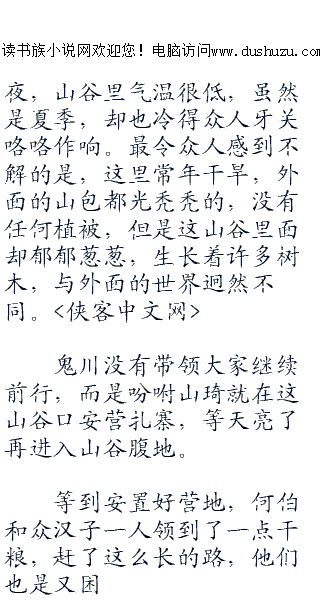 读书族小说网欢迎您！电脑访问www.dushuzu.com
夜，山谷里气温很低，虽然
是夏季，却也冷得众人牙关
咯咯作响。最令众人感到不
解的是，这里常年干旱，外
面的山包都光秃秃的，没有
任何植被，但是这山谷里面
却郁郁葱葱，生长着许多树
木，与外面的世界迥然不
同。<侠客中文网>
鬼川没有带领大家继续
前行，而是吩咐山琦就在这
山谷口安营扎寨，等天亮了
再进入山谷腹地。
等到安置好营地，何伯
和众汉子一人领到了一点干
粮，赶了这么长的路，他们
也是又困